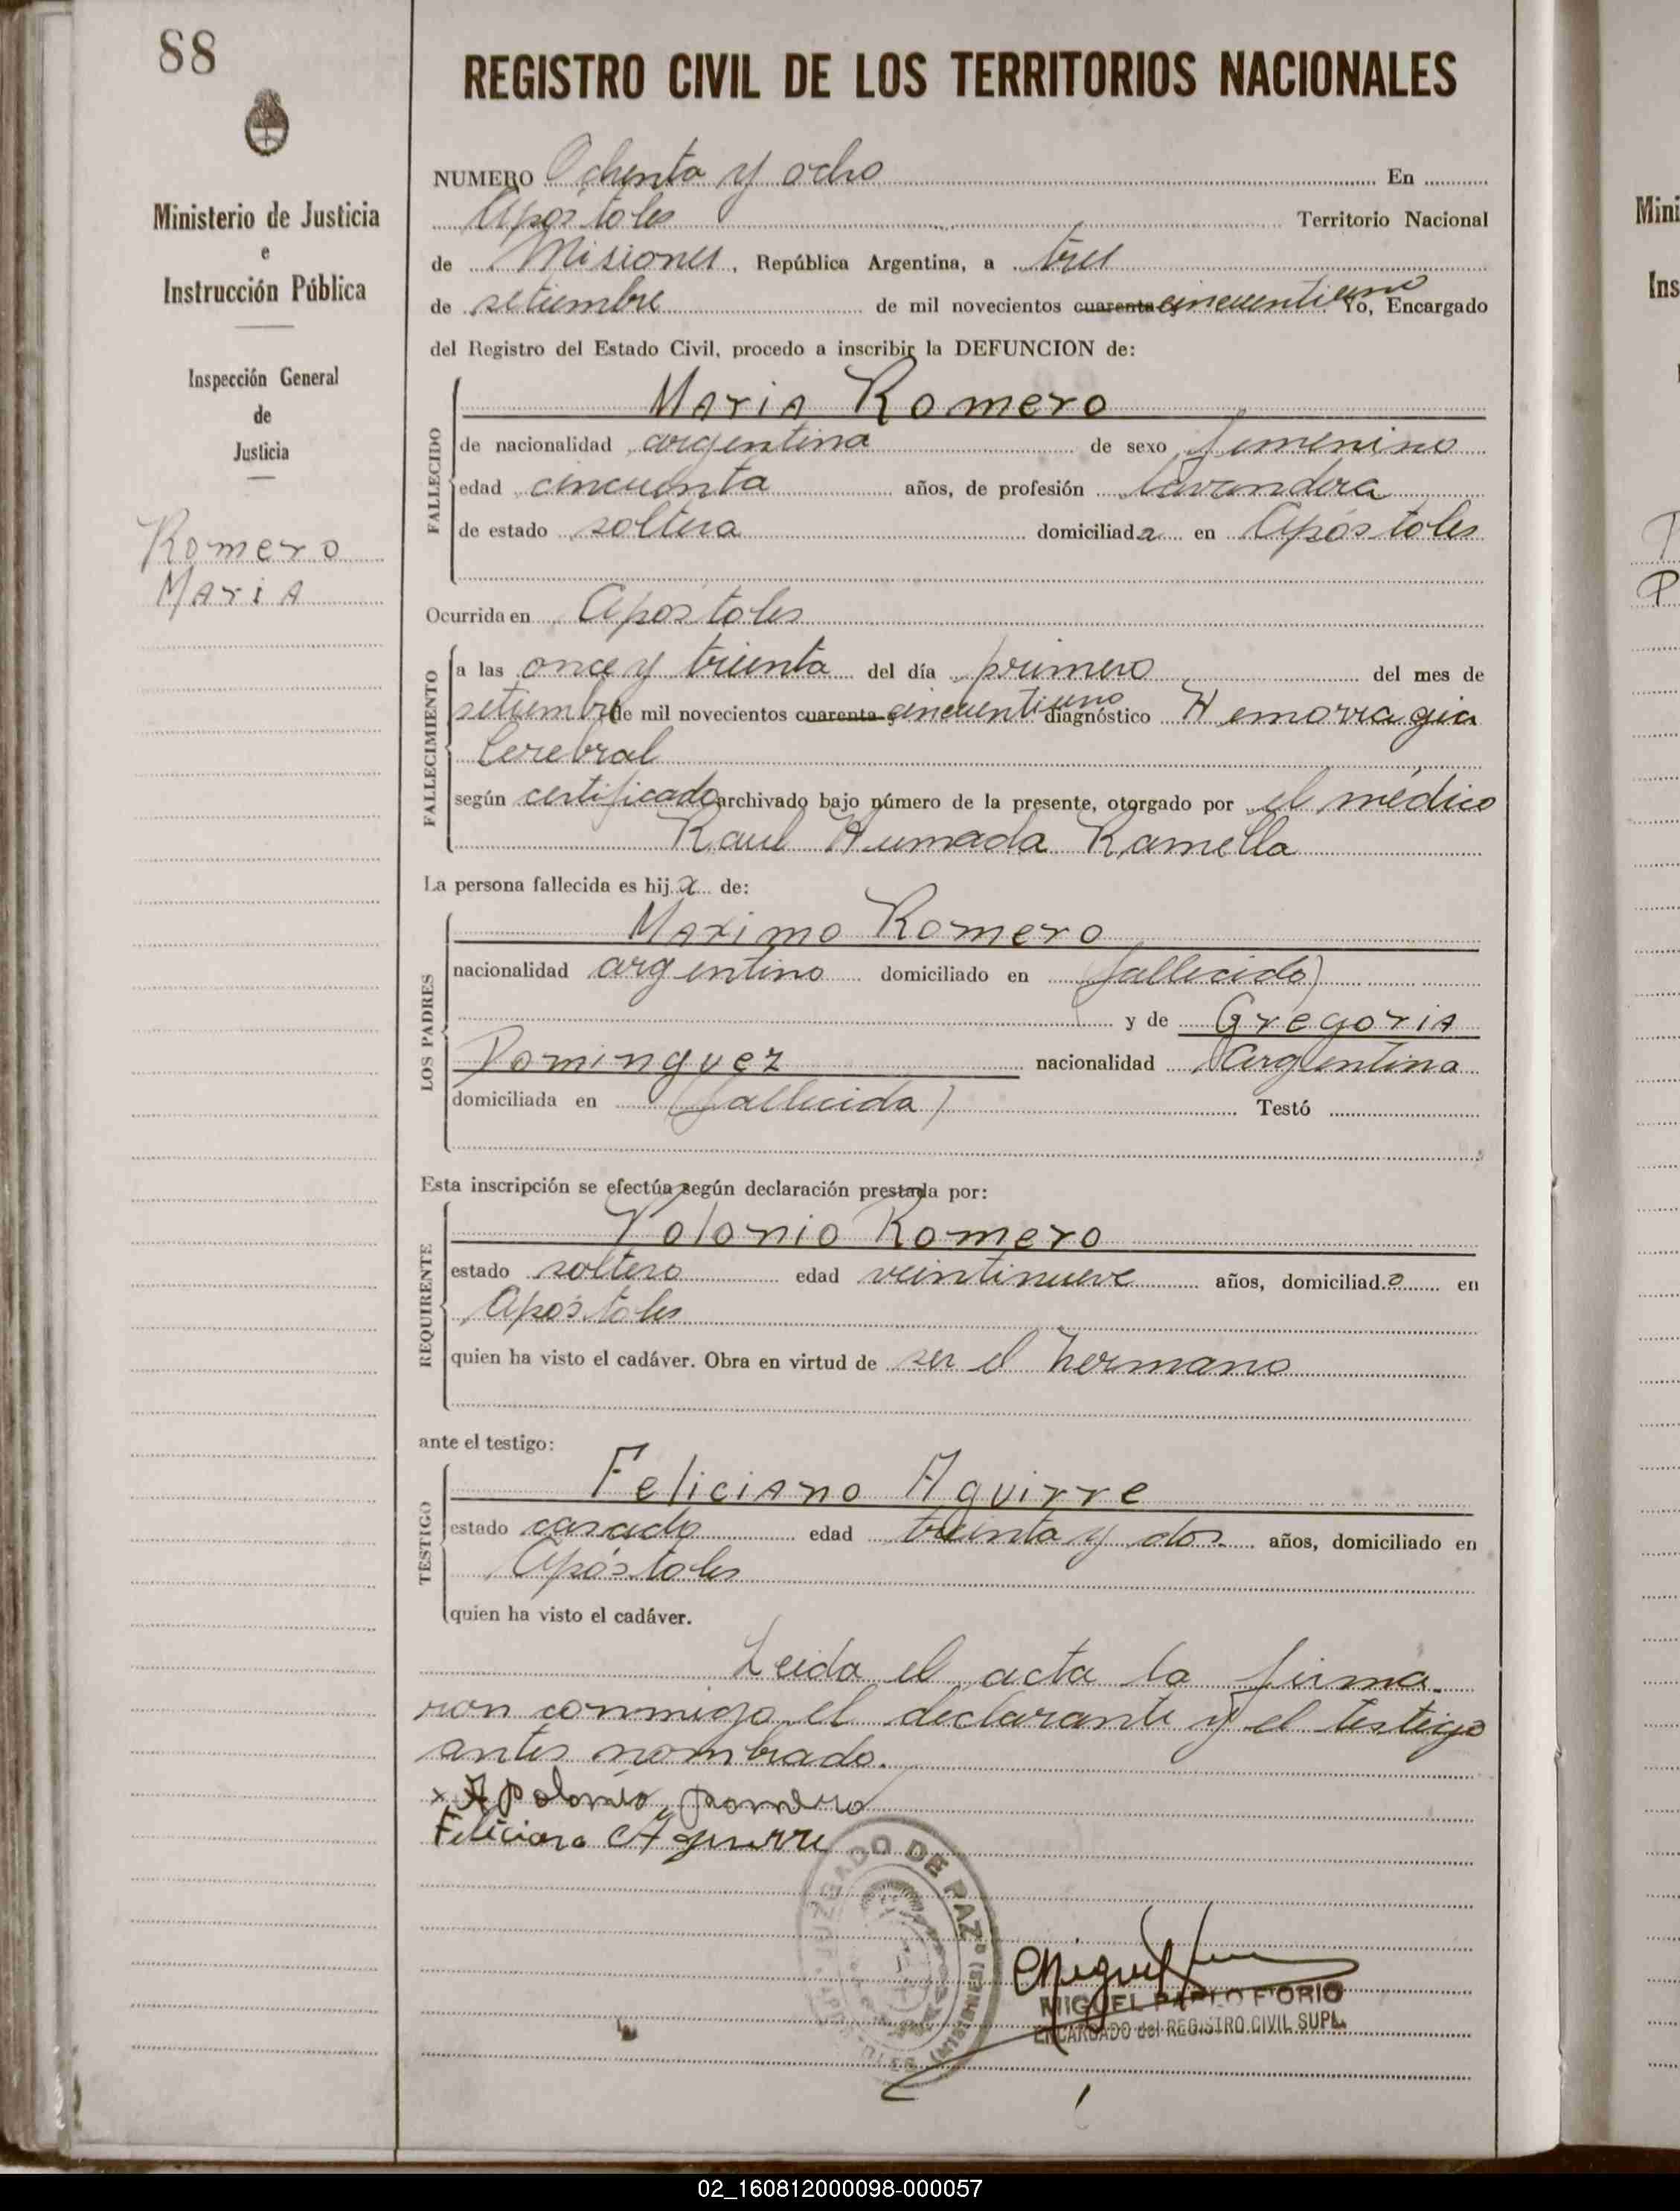 88
REGISTRO CIVIL DE LOS TERRITORIOS NACIONALES
Ministerio de Justicia
e
Instrucción Pública
Inspección General
de
Justicia
Romero
Maria
NUMERO Ochenta y ocho En
Apóstoles Territorio Nacional
de Misiones, República Argentina, a tres
de setiembre de mil novecientos cuarenta y cincuentiuno Yo, Encargado
del Registro del Estado Civil, procedo a inscribir la DEFUNCION de:
FALLECIDO
Maria Romero
de nacionalidad argentina de sexo femenino
edad cincuenta años, de profesión lavandera
de estado soltera domiciliada en Apóstoles
Ocurrida en Apóstoles
FALLECIMIENTO
a las once y treinta del día primero del mes de
setiembre de mil novecientos cuarenta y cincuentiuno diagnóstico Hemorragia
Cerebral
según certificado archivado bajo número de la presente, otorgado por el médico
Raul Humada Ramella
La persona fallecida es hija de:
LOS PADRES
Maximo Romero
nacionalidad argentino domiciliado en (fallecido)
y de Gregoria
Dominguez nacionalidad Argentina
domiciliada en (fallecida) Testó
Esta inscripción se efectúa según declaración prestada por:
REQUIRENTE
Polonio Romero
estado soltero edad veintinueve años, domiciliado en
Apóstoles
quien ha visto el cadáver. Obra en virtud de ser el hermano
ante el testigo:
TESTIGO
Feliciano Aguirre
estado casado edad treinta y dos años, domiciliado en
Apóstoles
quien ha visto el cadáver.
Leida el acta la firma-
ron conmigo el declarante y el testigo
antes nombrado.
x Apolonio Romero
Feliciano Aguirre
JUZGADO DE PAZ (MISIONES)
MIGUEL PABLO F'ORIO
ENCARGADO del REGISTRO CIVIL SUPL.
Mini
Ins
02_160812000098-000057